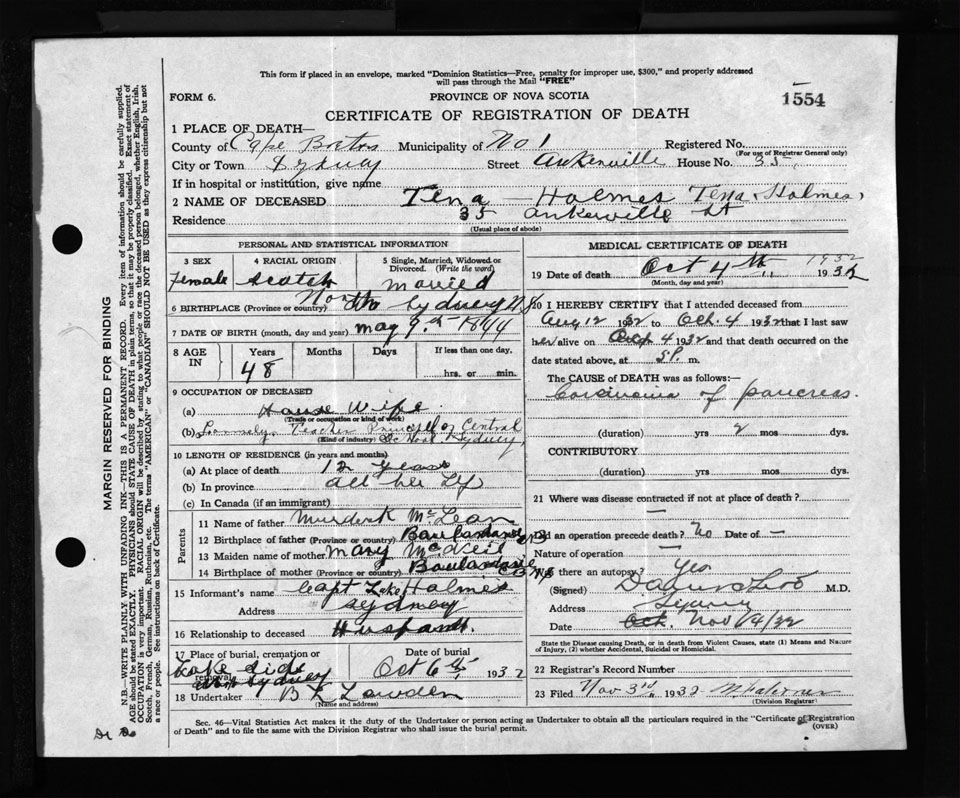 This form if placed in an envelope, marked "Dominion Statistics—Free, penalty for improper use, $300," and properly addressed
will pass through the Mail "FREE"
FORM 6.
PROVINCE OF NOVA SCOTIA
1554
CERTIFICATE OF REGISTRATION OF DEATH
1 PLACE OF DEATH—
County of Cape Breton Municipality of No 1 Registered No.
(For use of Registrar General only)
City or Town Sydney Street Ankerville House No. 35
If in hospital or institution, give name
2 NAME OF DECEASED Tena — Holmes Tena Holmes
Residence 35 Ankerville St
(Usual place of abode)
PERSONAL AND STATISTICAL INFORMATION
3 SEX
4 RACIAL ORIGIN
5 Single, Married, Widowed or Divorced. (Write the word)
Female Scotch Maried
6 BIRTHPLACE (Province or country) North Sydney N S
7 DATE OF BIRTH (month, day and year) May 9th
8 AGE IN
Years Months Days If less than one day,
48 hrs. or min.
9 OCCUPATION OF DECEASED
(a) House Wife
(Trade or occupation or kind of work)
(b) Formerly Teacher Principal of Central
(Kind of industry) School Sydney
10 LENGTH OF RESIDENCE (in years and months)
(a) At place of death 12 years
(b) In province all her
(c) In Canada (if an immigrant)
Parents
11 Name of father McLean
12 Birthplace of father (Province or country)
13 Maiden name of mother Mary McNeil
14 Birthplace of mother (Province or country)
15 Informant's name Capt Luke Holmes
Address Sydney
16 Relationship to deceased Husband.
17 Place of burial, cremation or removal
Lake Side
North Sydney
Date of burial
Oct 6th, 1932
18 Undertaker Lowden
(Name and address)
MEDICAL CERTIFICATE OF DEATH
19 Date of death Oct 4th 1932
1932
(Month, day and year)
20 I HEREBY CERTIFY that I attended deceased from
Aug 12 1932 to Oct. 4 1932 that I last saw
her alive on 4 1932 and that death occurred on the
date stated above, at m.
The CAUSE of DEATH was as follows:—
Carcinoma of pancreas.
(duration) yrs 2 mos dys.
CONTRIBUTORY
(duration) yrs. mos. dys.
21 Where was disease contracted if not at place of death?
Did an operation precede death? No Date of —
Nature of operation —
Was there an autopsy? Yes
(Signed) M.D.
Address Sydney
Date Oct. Nov
State the Disease causing Death, or in death from Violent Causes, state (1) Means and Nature
of Injury, (2) whether Accidental, Suicidal or Homicidal.
22 Registrar's Record Number
23 Filed Nov 3rd, 1932
(Division Registrar)
Sec. 46—Vital Statistics Act makes it the duty of the Undertaker or person acting as Undertaker to obtain all the particulars required in the "Certificate of Registration
of Death" and to file the same with the Division Registrar who shall issue the burial permit.
(OVER)
MARGIN RESERVED FOR BINDING
N.B.—WRITE PLAINLY WITH UNFADING INK—THIS IS A PERMANENT RECORD. Every item of information should be carefully supplied.
AGE should be stated EXACTLY. PHYSICIANS should STATE CAUSE OF DEATH in plain terms, so that it may be properly classified. Exact statement of
OCCUPATION is very important. RACIAL ORIGIN will be described by stating to what people or race the deceased person belonged, whether English, Irish,
Scotch, French, German, Russian, Ruthenian, etc. The terms "AMERICAN" or "CANADIAN" SHOULD NOT BE USED as they express citizenship but not
a race or people. See instructions on back of Certificate.